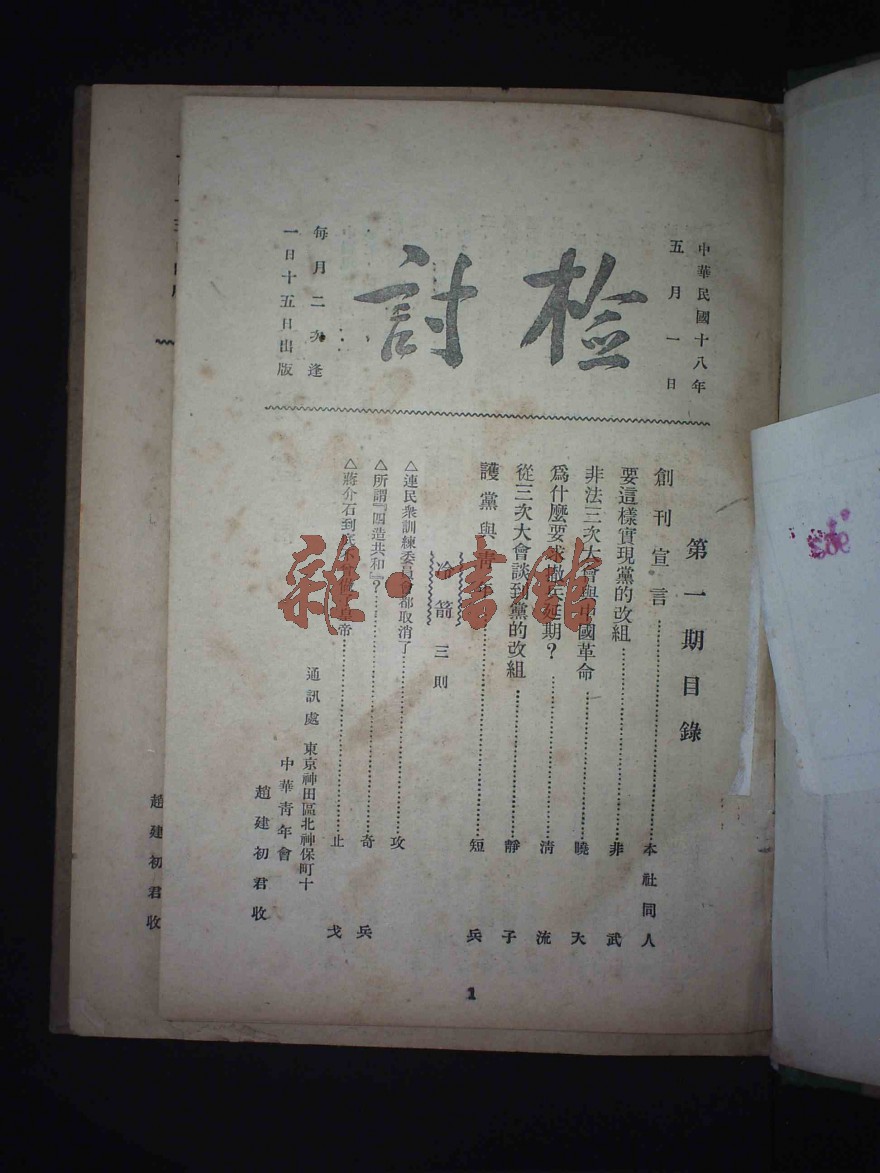 中華民國十八年
五月一日
檢討
每月二次逢
一日十五日出版
第一期目錄
創刊宣言⋯⋯本社同人
要這樣實現黨的改組⋯⋯非武
非法三次大會與中國革命⋯⋯曉天
爲什麼要求撤兵延期？⋯⋯清流
從三次大會談到黨的改組⋯⋯靜子
護黨與靑年⋯⋯短兵
冷箭三則
△連民衆訓練委員會都取消了⋯⋯攻
△所謂『四造共和』？⋯⋯奇兵
△蔣介石到底不會做皇帝⋯⋯止戈
通訊處 東京神田區北神保町十
中華靑年會
趙建初君收
1
雜·書館
趙建初君收